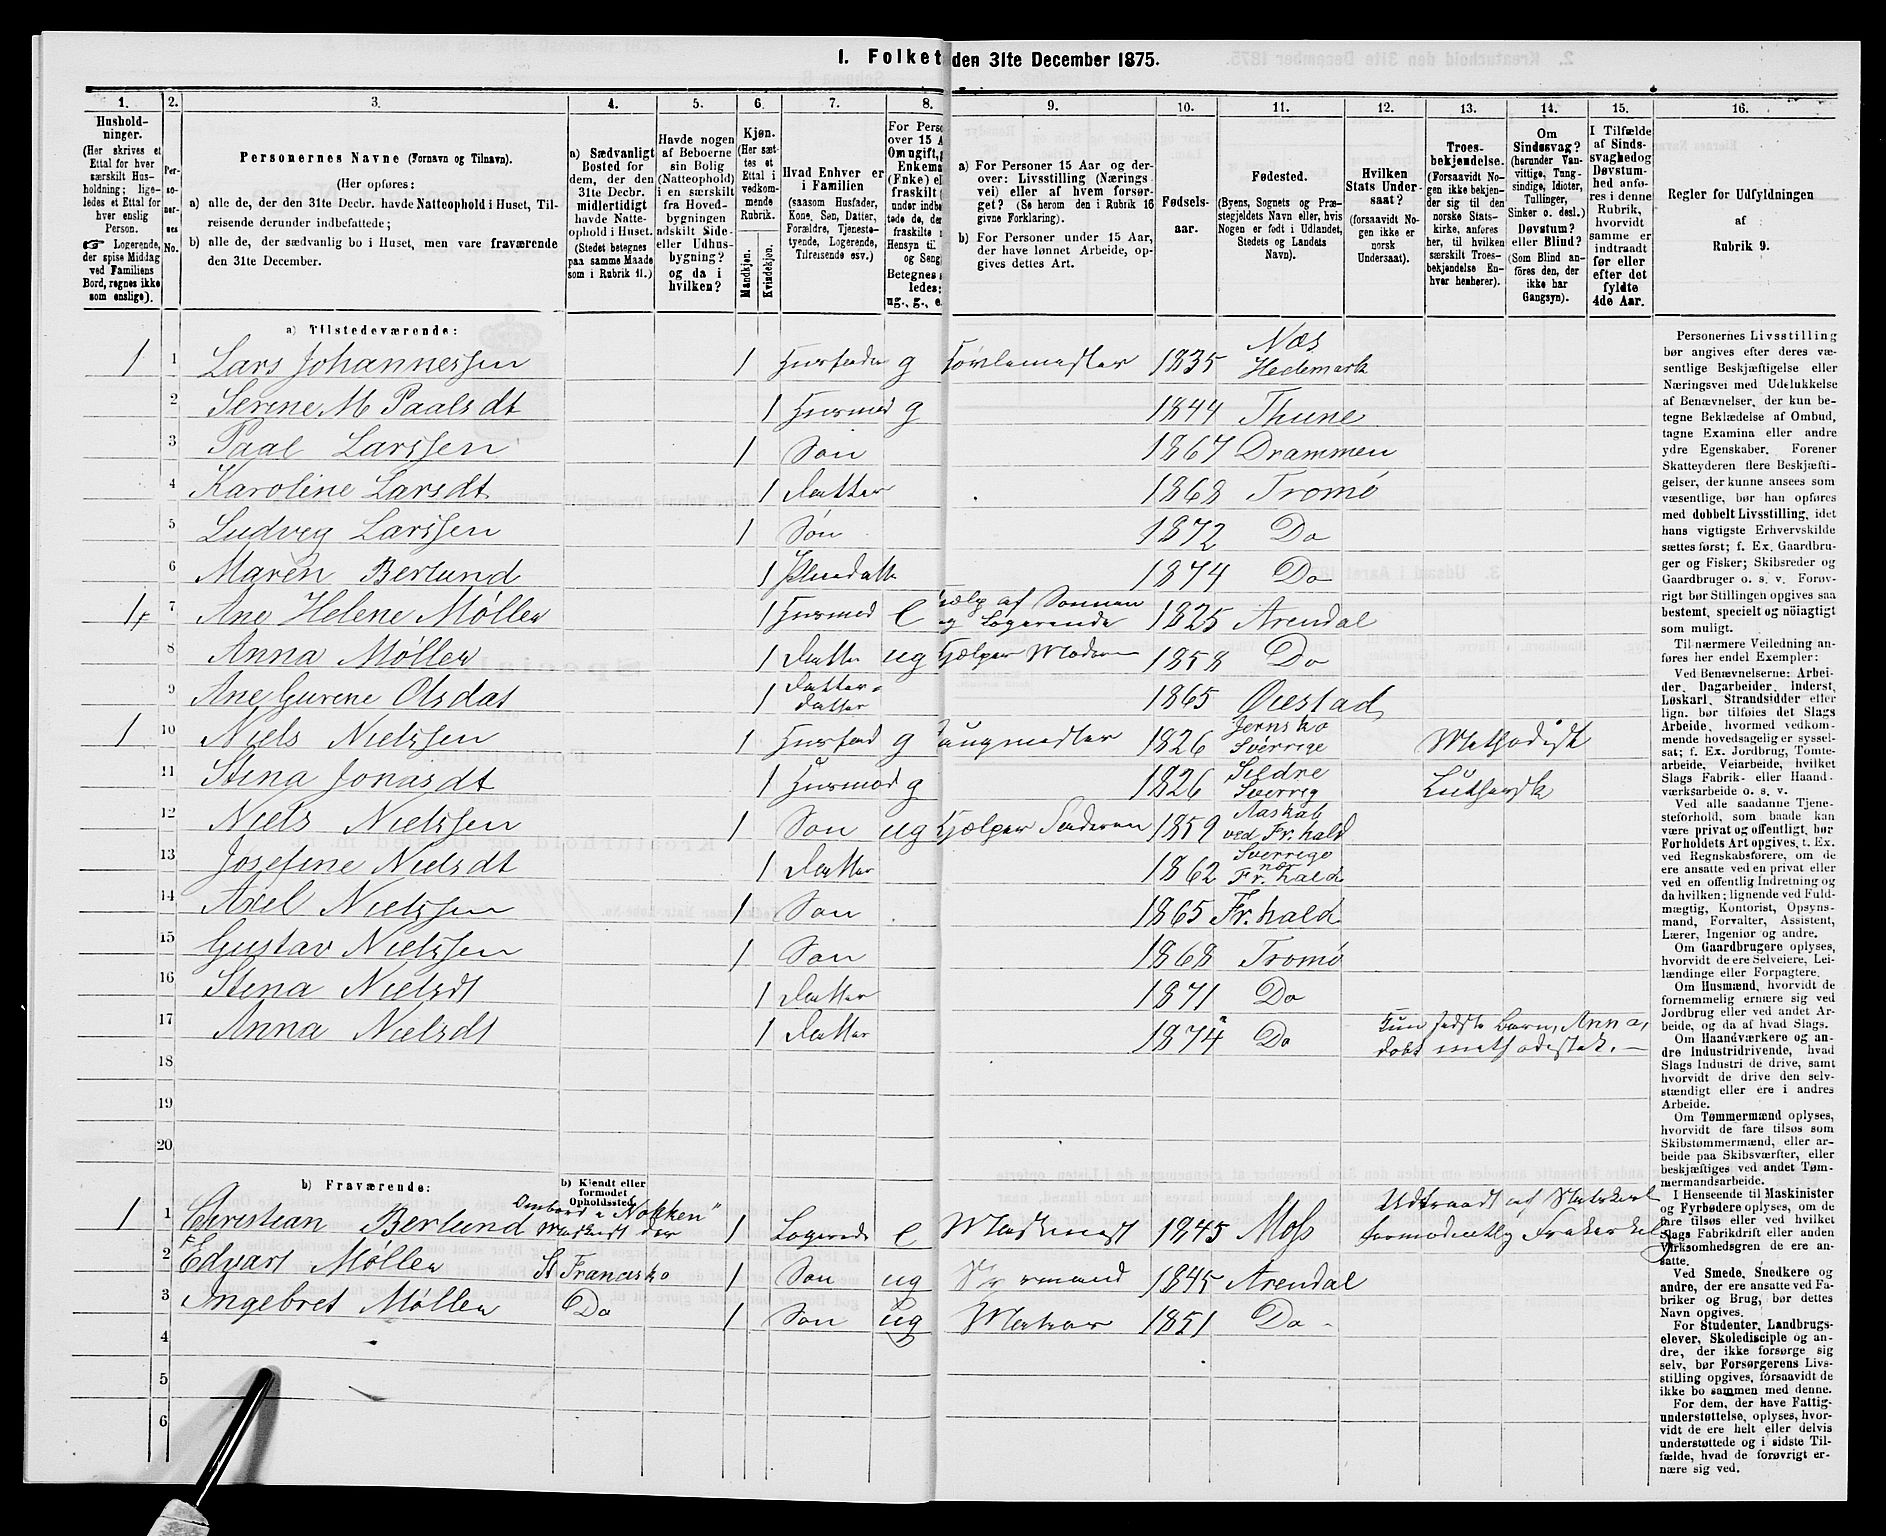 1. Folket den 31te December 1875.
1. 2. 3. 4. 5. 6. 7. 8. 9. 10. 11. 12. 13. 14. 15. 16.
Hushold-
ninger.
(Her skrives et
Ettal for hver
særskilt Hus-
holdning; lige-
ledes et Ettal for
hver enslig
Person.
☞ Logerende,
der spise Middag
ved Familiens
Bord, regnes ikke
som enslige).
Per-
so-
ner-
nes
No.
Personernes Navne (Fornavn og Tilnavn).
(Her opføres:
a) alle de, der den 31te Decbr. havde Natteophold i Huset, Til-
reisende derunder indbefattede;
b) alle de, der sædvanlig bo i Huset, men vare fraværende
den 31te December.
a) Sædvanligt
Bosted for
dem, der den
31te Decbr.
midlertidigt
havde Natte-
ophold i Huset.
(Stedet betegnes
paa samme Maade
som i Rubrik 11.)
Havde nogen
af Beboerne
sin Bolig
(Natteophold)
i en særskilt
fra Hoved-
bygningen
adskilt Side-
eller Udhus-
bygning?
og da i
hvilken?
Kjøn.
(Her sæt-
tes et
Ettal i
vedkom-
mende
Rubrik.
Mandkjøn.
Kvindekjøn.
Hvad Enhver er
i Familien
(saasom Husfader,
Kone, Søn, Datter,
Forældre, Tjeneste-
tyende, Logerende,
Tilreisende osv.)
For Perso
over 15 A
Om ugift,
Enkema
(Enke) el
fraskilt
under indbe
tede de, der
fraskilte
Hensyn til
og Seng
Betegnes
ledes:
ug., g., e.
a) For Personer 15 Aar og der-
over: Livsstilling (Nærings-
vei) eller af hvem forsør-
get? (Se herom den i Rubrik 16
givne Forklaring).
b) For Personer under 15 Aar,
der have lønnet Arbeide, op-
gives dettes Art.
Fødsels-
aar.
Fødested.
(Byens, Sognets og Præ-
stegjeldets Navn eller, hvis
Nogen er født i Udlandet,
Stedets og Landets
Navn).
Hvilken
Stats Under-
saat?
(forsaavidt No-
gen ikke er
norsk
Undersaat).
Troes-
bekjendelse.
(Forsaavidt No-
gen ikke bekjen-
der sig til den
norske Stats-
kirke, anføres
her, til hvilken
særskilt Troes-
bekjendelse En-
hver henhører).
Om
Sindssvag?
(herunder Van-
vittige, Tung-
sindige, Idioter,
Tullinger,
Sinker o. desl.)
Døvstum?
eller Blind?
(Som Blind an-
føres den, der
ikke har
Gangsyn).
I Tilfælde
af Sinds-
svaghed og
Døvstum-
hed anfø-
res i denne
Rubrik,
hvorvidt
samme er
indtraadt
før eller
efter det
fyldte
4de Aar.
Regler for Udfyldningen
af
Rubrik 9.
a) Tilstedeværende:
1 1 Lars Johannessen 1 Husfader g 1835 Næs
Hedemark
2 Serene M Paalsdt 1 Husmod g 1844 Thune
3 Paal Larssen 1 Søn 1867 Drammen
4 Karoline Larsdt 1 Datter 1868 Tromø
5 Ludvig Larssen 1 Søn 1872 Do
6 Maren Berlund 1 Pleiedatt 1874 Do
7 Ane Helene Møller 1 Husmod e Hjælp af Sønnen
og Logerende 1825 Arendal
8 Anna Møller 1 Datter ug Hjælper Moderen 1858 Do
9 Ane Gurene Olsdat 1 Datter-
datter 1865 Øiestad
1 10 Niels Nielssen 1 Husfad g 1826 Jernsko
Sverrige Methodist
11 Stina Jonasdt 1 Husmod g 1826 Seldre
Sverrig Luthersk
12 Niels Nielssen 1 Søn ug Hjælper Faderen 1859 Aaskab
ved Fr.hald
13 Josefine Nielsdt 1 Datter 1862 Sverrige
nær
Fr.hald
14 Axel Nielssen 1 Søn 1865 Fr.hald
15 Gustav Nielssen 1 Søn 1868 Tromø
16 Stena Nielsdt 1 Datter 1871 Do
17 Anna Nielsdt 1 Datter 1874 Do Kun sidste Barn, Anna,
døbt methodistisk.
18
19
20
b) Fraværende:
b) Kjendt eller
formodet
Opholdssted.
1 1 Christian Berlund Ombord i "Nokken" 1 Logerende e Maskinist 1845 Moss Udtraadt af Statskirk
formodentlig Frakirkelig
2 Edvart Møller St Francisko 1 Søn ug Styrmand 1845 Arendal
3 Ingebret Møller Do 1 Søn ug Matros 1851 Do
4
5
6
Personernes Livsstilling
bør angives efter deres væ-
sentlige Beskjæftigelse eller
Næringsvei med Udelukkelse
af Benævnelser, der kun be-
tegne Beklædelse af Ombud,
tagne Examina eller andre
ydre Egenskaber. Forener
Skatteyderen flere Beskjæfti-
gelser, der kunne ansees som
væsentlige, bør han opføres
med dobbelt Livsstilling, idet
hans vigtigste Erhvervskilde
sættes først; f. Ex. Gaardbru-
ger og Fisker; Skibsreder og
Gaardbruger o. s. v. Forøv-
rigt bør Stillingen opgives saa
bestemt, specielt og nøiagtigt
som muligt.
Til nærmere Veiledning an-
føres her endel Exempler:
Ved Benævnelserne: Arbei-
der, Dagarbeider, Inderst,
Løskarl, Strandsidder eller
lign. bør tilføies det Slags
Arbeide, hvormed vedkom-
mende hovedsagelig er syssel-
sat; f. Ex. Jordbrug, Tomte-
arbeide, Veiarbeide, hvilket
Slags Fabrik- eller Haand-
værksarbeide o. s. v.
Ved alle saadanne Tjene-
steforhold, som baade kan
være privat og offentligt, bør
Forholdets Art opgives, t. Ex.
ved Regnskabsførere, om de
ere ansatte ved en privat eller
ved en offentlig Indretning og
da hvilken; lignende ved Fuld-
mægtig, Kontorist, Opsyns-
mand, Forvalter, Assistent,
Lærer, Ingeniør og andre.
Om Gaardbrugere oplyses,
hvorvidt de ere Selveiere, Lei-
lændinge eller Forpagtere.
Om Husmænd, hvorvidt de
fornemmelig ernære sig ved
Jordbrug eller ved andet Ar-
beide, og da af hvad Slags.
Om Haandværkere og an-
dre Industridrivende, hvad
Slags Industri de drive, samt
hvorvidt de drive den selv-
stændigt eller ere i andres
Arbeide.
Om Tømmermænd oplyses,
hvorvidt de fare tilsøs som
Skibstømmermænd, eller ar-
beide paa Skibsværfter, eller
beskjæftiges ved andet Tøm-
mermandsarbeide.
I Henseende til Maskinister
og Fyrbødere oplyses, om de
fare tilsøs eller ved hvilket
Slags Fabrikdrift eller anden
Virksomhedsgren de ere an-
satte.
Ved Smede, Snedkere og
andre, der ere ansatte ved Fa-
briker og Brug, bør dettes
Navn opgives.
For Studenter, Landbrugs-
elever, Skoledisciple og an-
dre, der ikke forsørge sig
selv, bør Forsørgerens Livs-
stilling opgives, forsaavidt de
ikke bo sammen med denne.
For dem, der have Fattig-
understøttelse, oplyses, hvor-
vidt de ere helt eller delvis
understøttede og i sidste Til-
fælde, hvad de forøvrigt er-
nære sig ved.